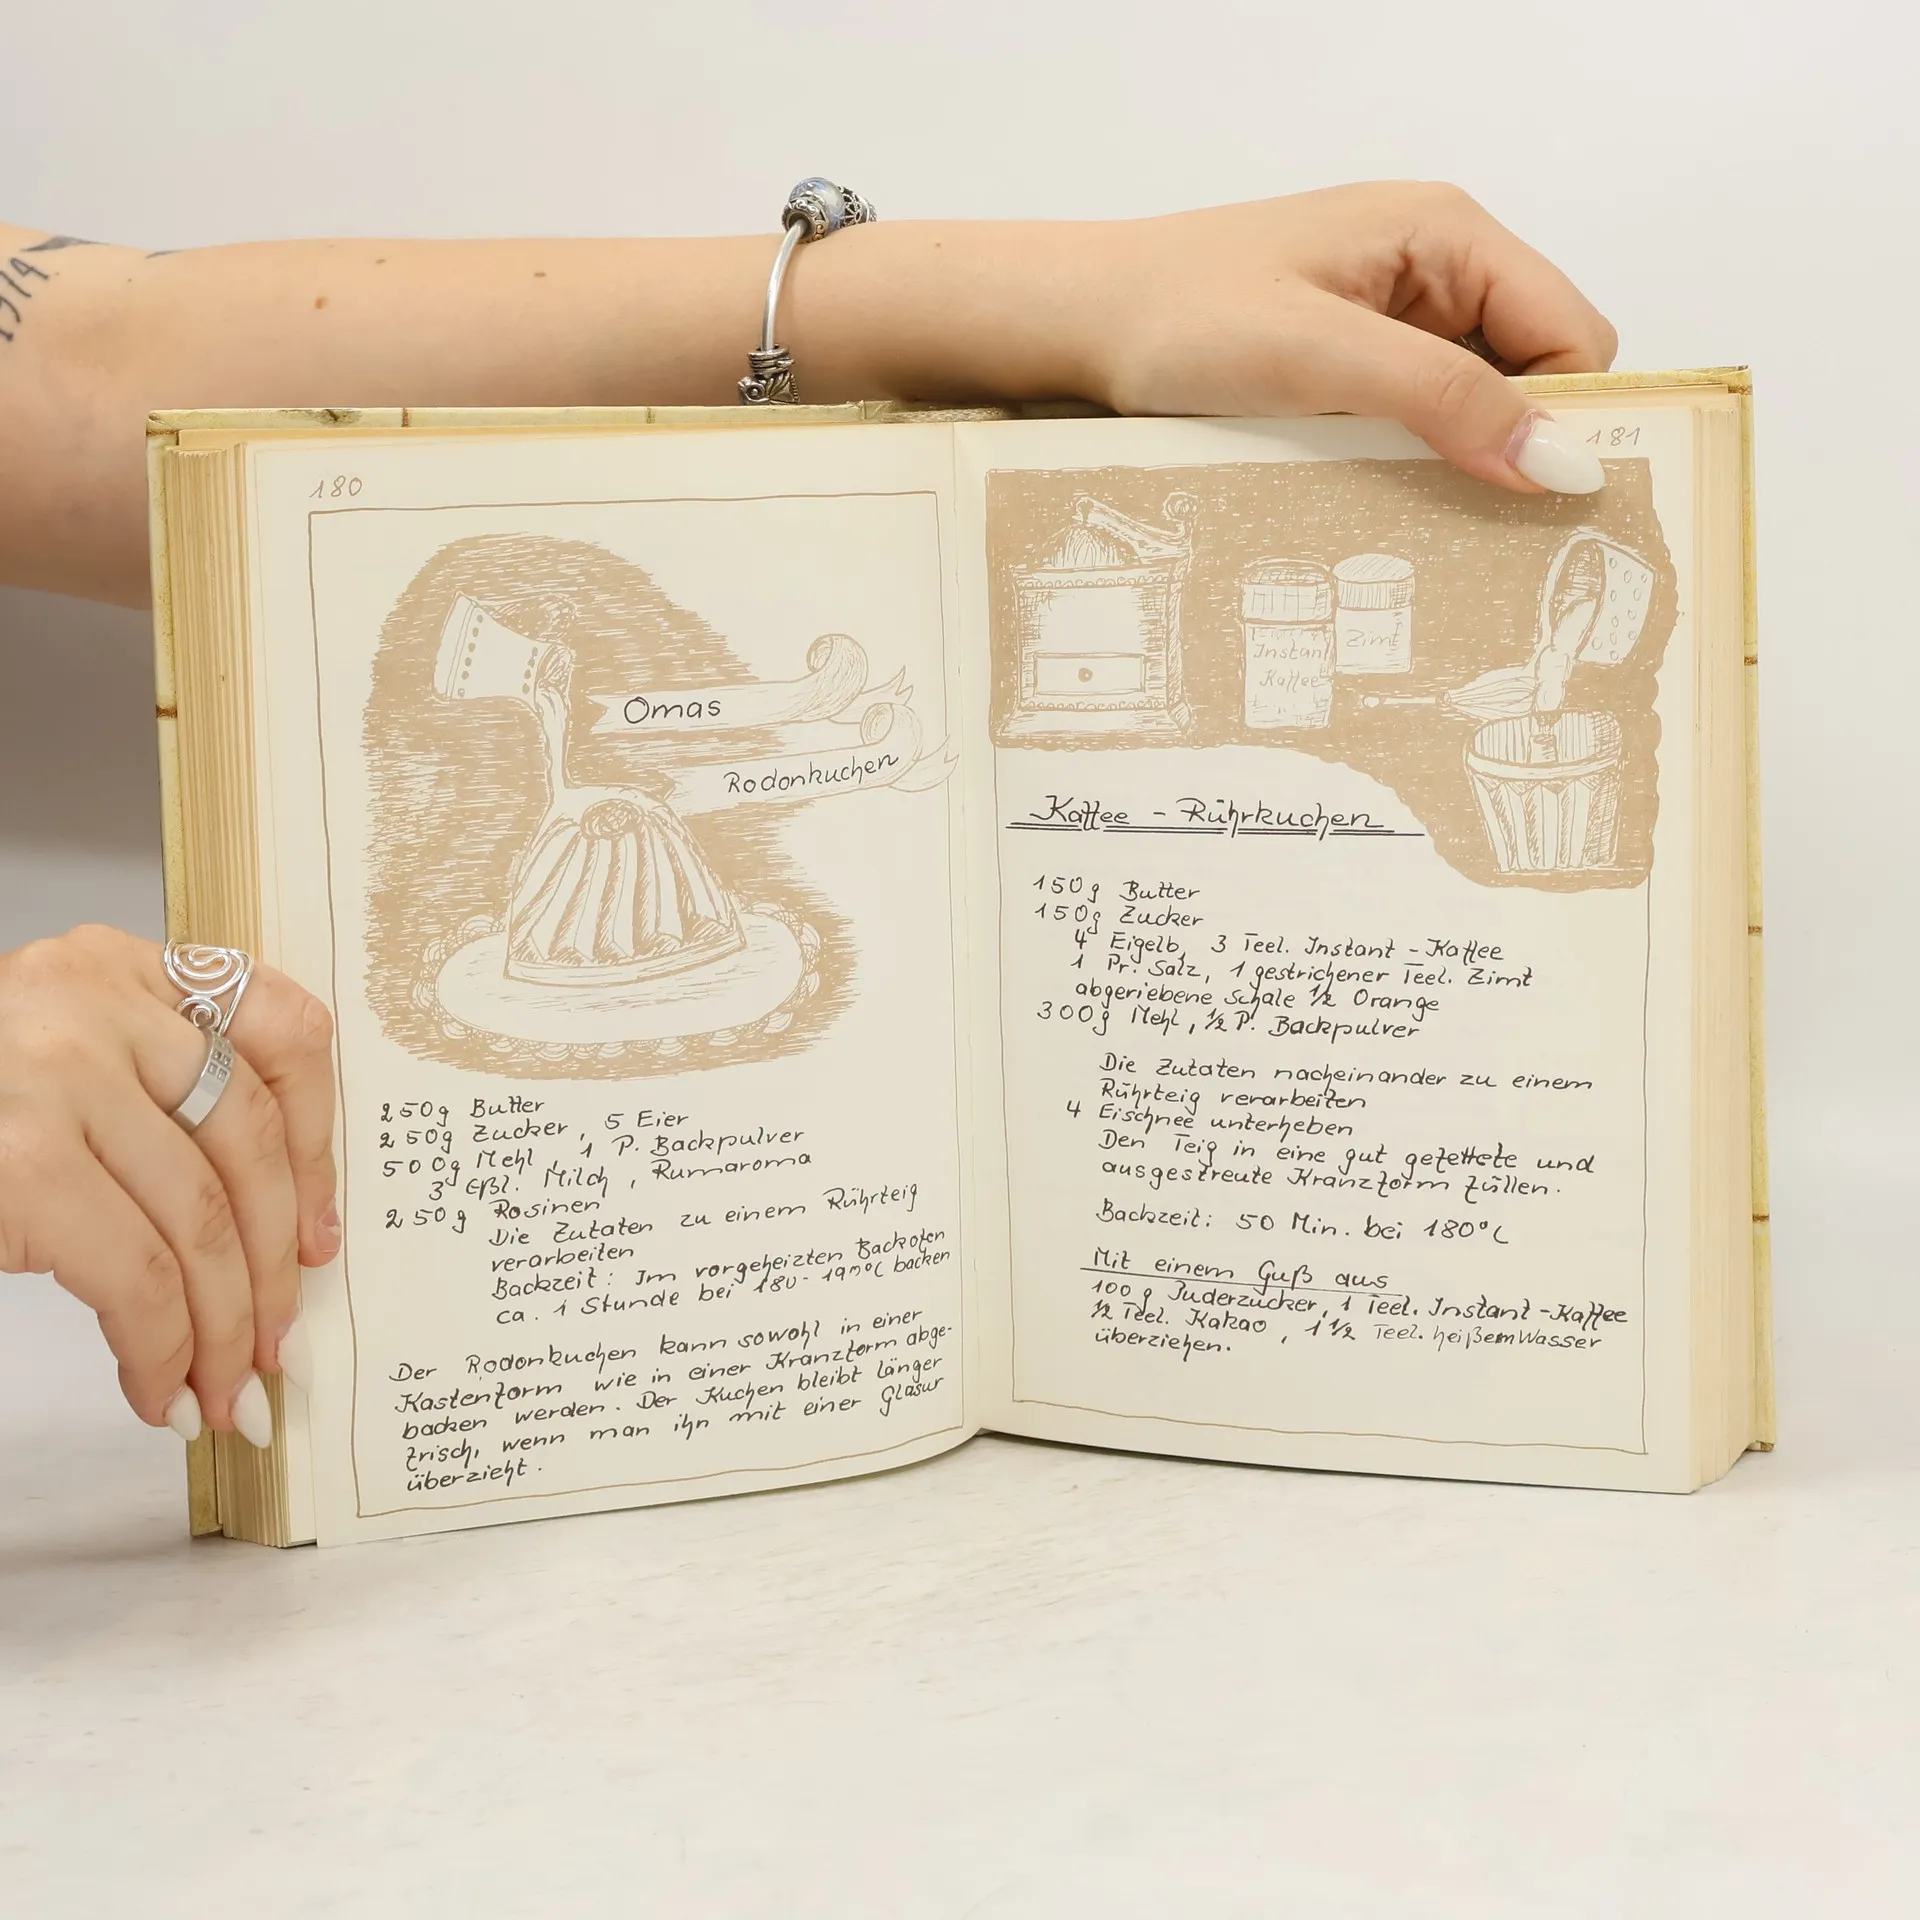 1974
180
Omas
Rodonkuchen
250g Butter
250g Zucker, 5 Eier
500g Mehl, 1 P. Backpulver
3 Eßl. Milch, Rumaroma
250g Rosinen
Die Zutaten zu einem Rührteig
verarbeiten
Backzeit: Im vorgeheizten Backofen
ca. 1 Stunde bei 180-190°C backen
Der Rodonkuchen kann sowohl in einer
Kastenform wie in einer Kranzform abge-
backen werden. Der Kuchen bleibt länger
frisch, wenn man ihn mit einer Glasur
überzieht.
181
Instant
Kaffee
Zimt
Kaffee - Rührkuchen
150g Butter
150g Zucker
4 Eigelb, 3 Teel. Instant-Kaffee
1 Pr. Salz, 1 gestrichener Teel. Zimt
abgeriebene Schale 1/2 Orange
300g Mehl, 1/2 P. Backpulver
Die Zutaten nacheinander zu einem
Rührteig verarbeiten
4 Eischnee unterheben
Den Teig in eine gut gefettete und
ausgestreute Kranzform füllen.
Backzeit: 50 Min. bei 180°C
Mit einem Guß aus
100g Puderzucker, 1 Teel. Instant-Kaffee
1/2 Teel. Kakao, 1 1/2 Teel. heißem Wasser
überziehen.